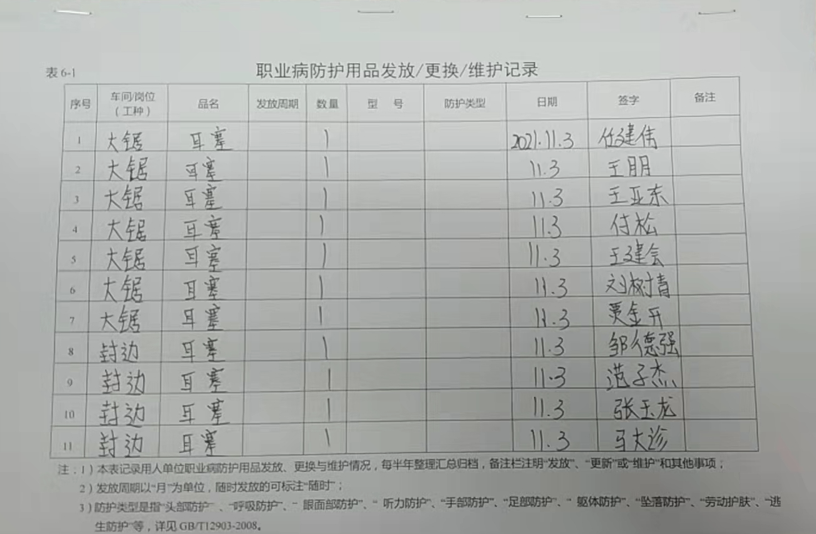 表 6-1
职业病防护用品发放/更换/维护记录
序号 车间/岗位（工种） 品名 发放周期 数量 型 号 防护类型 日期 签字 备注
1 大锯 耳塞 1 2021.11.3 任建伟
2 大锯 耳塞 1 11.3 王朋
3 大锯 耳塞 1 11.3 王亚东
4 大锯 耳塞 1 11.3 付松
5 大锯 耳塞 1 11.3 王建会
6 大锯 耳塞 1 11.3 刘树清
7 大锯 耳塞 1 11.3 贾金开
8 封边 耳塞 1 11.3 邹德强
9 封边 耳塞 1 11.3 范子杰
10 封边 耳塞 1 11.3 张玉龙
11 封边 耳塞 1 11.3 马大
注：1）本表记录用人单位职业病防护用品发放、更换与维护情况，每半年整理汇总归档，备注栏注明“发放”、“更新”或“维护”和其他事项；
2）发放周期以“月”为单位，随时发放的可标注“随时”；
3）防护类型是指“头部防护”、“呼吸防护”、“ 眼面部防护”、“ 听力防护”、“手部防护”、“足部防护”、“ 躯体防护”、“坠落防护”、“劳动护肤”、“逃
生防护”等，详见 GB/T12903-2008。